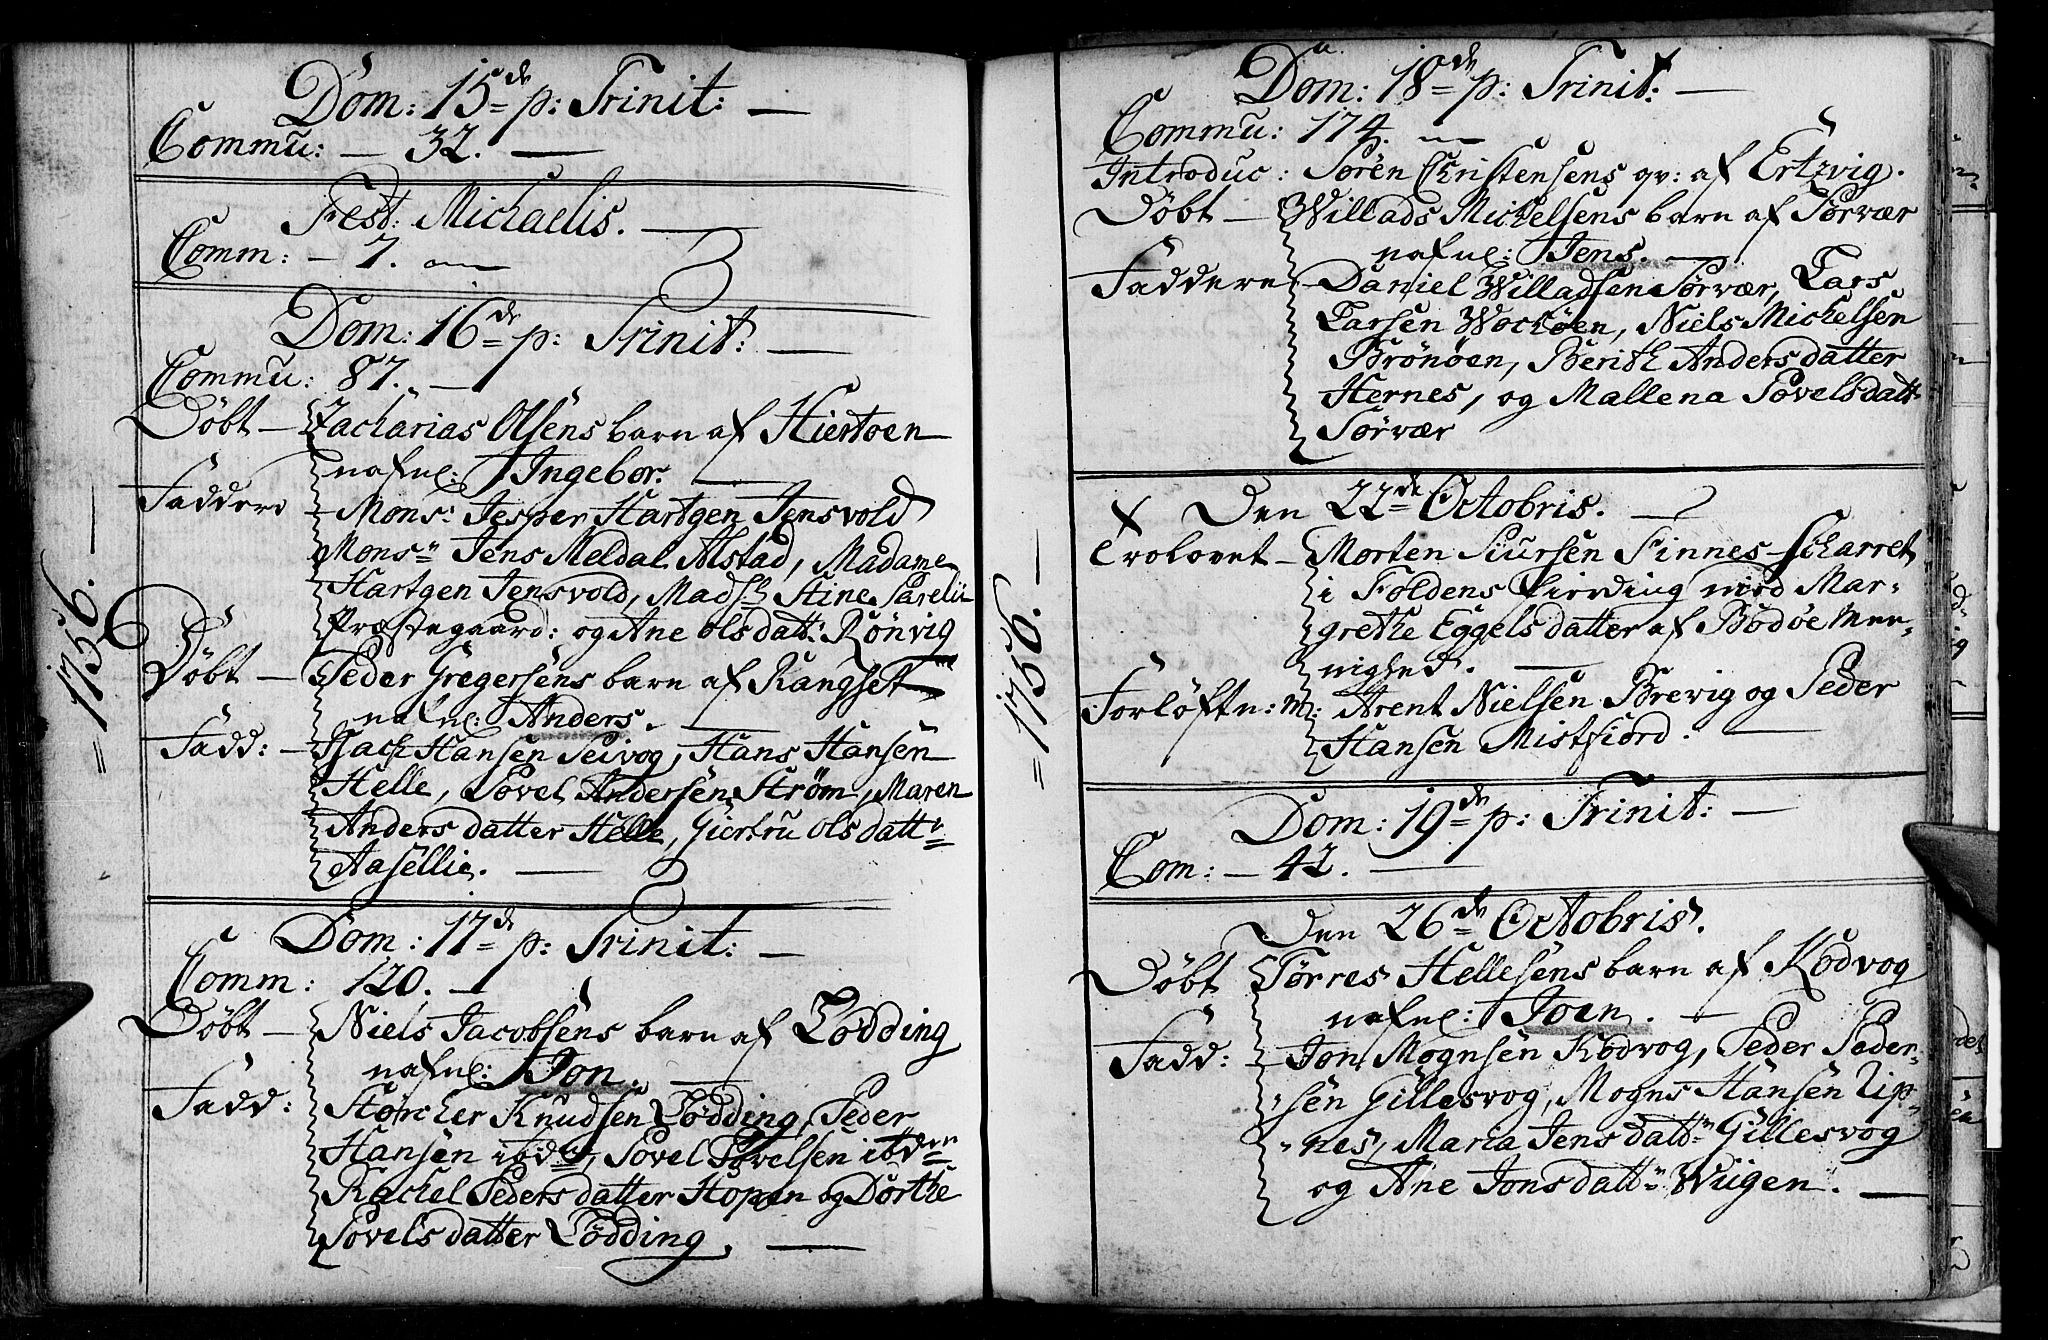 = 1756. —
Dom: 15de p: Trinit: —
Commu: — 32. —
Fest: Michaelis. —
Comm: — 7. —
Dom: 16de p: Trinit: —
Commu: 87. —
Døbt — Zacharias Olsens barn af Hiertøen
nafnl: Ingebor. —
Faddere — Mons: Jesper Hartgen Jensvold
Monsr Jens Meldal Alstad, Madame
Hartgen Jensvold, Madsll Stine Parelii
Præstegaard: og Ane Olsdattr Rønvig
Døbt — Peder Gregersens barn af Rangset
nafnl: Anders. —
Fadd: — Isach Hansen Seivog, Hans Hansen
Helle, Povel Andersen Strøm, Maren
Anders datter Helle, Giertru Olsdattr
Aasellie. —
Dom: 17de p: Trinit: —
Comm: 120. —
Døbt — Niels Jacobsens barn af Lødding
nafnl: Jon. —
Fadd: Størcher Knudsen Lødding, Peder
Hansen ibdm, Povel Povelsen ibdem
Rachel Peders datter Hopen og Dorthe
Povels datter Lødding. —
= 1756. —
Dom: 18de p: Trinit: —
Commu: 174. —
Introduc: Søren Christensens qv: af Ertzvig.
Døbt — Willads Michelsens barn af Sørvær
nafnl: Jens. —
Faddere — Daniel Willadsen Sørvær, Lars
Larsen Wochøen, Niels Michelsen
Brønøen, Berith Anders datter
Hernes, og Mallena Povelsdatt
Sørvær
Den 22de Octobris. —
Trolovet — Morten Siursen Finnes-Scharret
i Foldens fierding med Mar-
grethe Eggels datter af Bodøe Mee-
nighed. —
Forløftn: m: Arent Nielsen Brevig og Peder
Hansen Mistfiord. —
Dom: 19de p: Trinit: —
Com: — 42. —
Den 26de Octobris.
Døbt Tørres Hellesens barn af Kodvog
nafnl: Joen. —
Fadd: — Jon Mognsen Kodvog, Peder Peder-
sen Gillesvog, Mogns Hansen Lip-
nes, Maria Jens dattr Gillesvog
og Ane Jonsdattr Wiigen. —